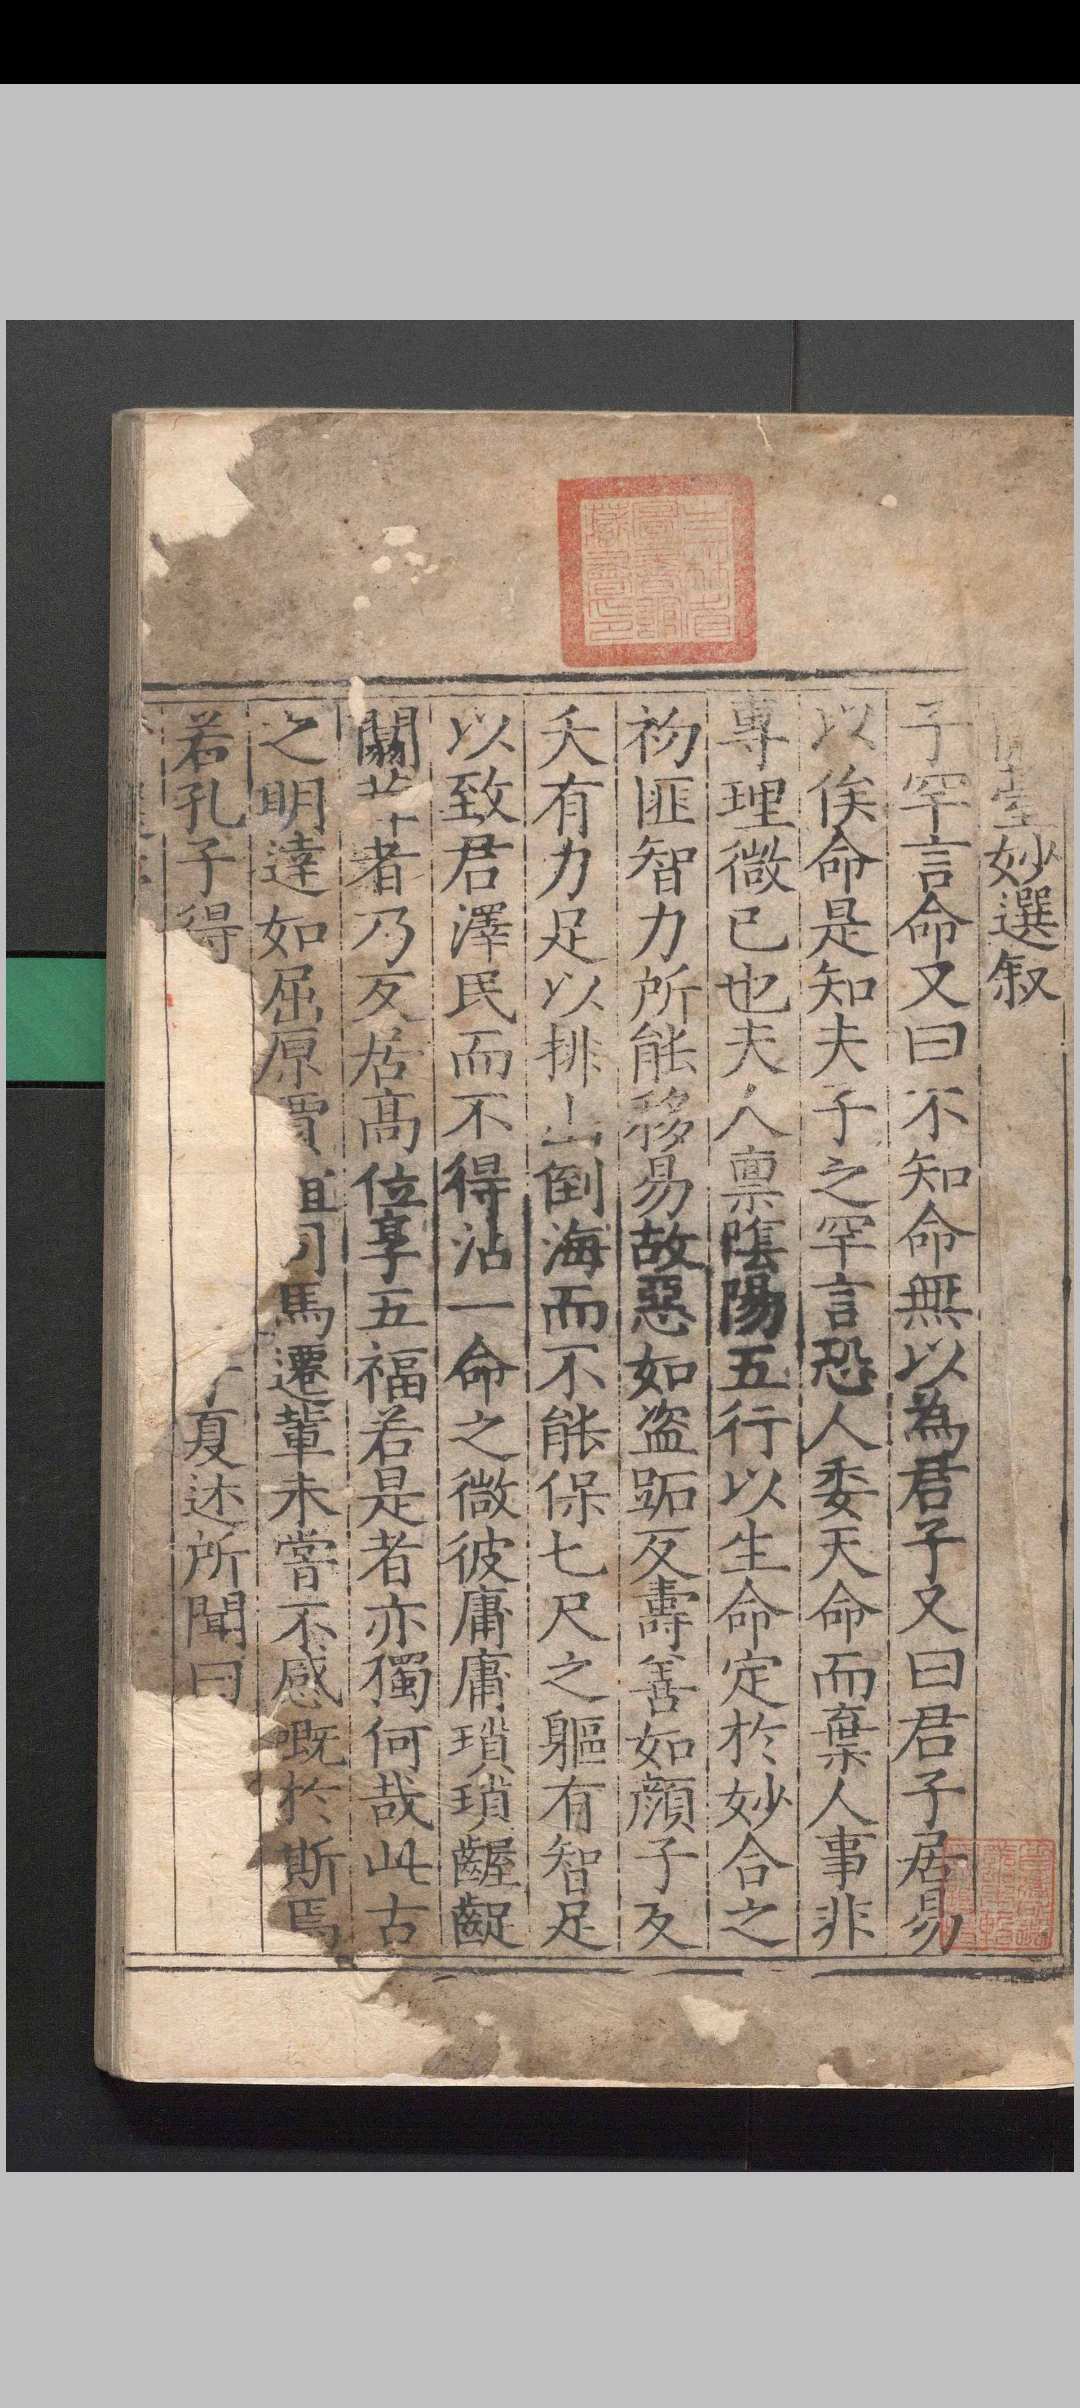 臺妙選叙
子罕言命又曰不知命無以為君子又曰君子居易
以俟命是知夫子之罕言恐人委天命而棄人事非
專理微已也夫人稟陰陽五行以生命定於妙合之
初匪智力所能移易故惡如盗跖反壽善如顔子反
夭有力足以排山倒海而不能保七尺之軀有智足
以致君澤民而不得沾一命之微彼庸庸瑣瑣齷齪
闒茸者乃反居高位享五福若是者亦獨何哉此古
之明達如屈原賈誼司馬遷輩未嘗不感嘅於斯焉
若孔子得
夏述所聞曰
吉林省圖書館藏書印